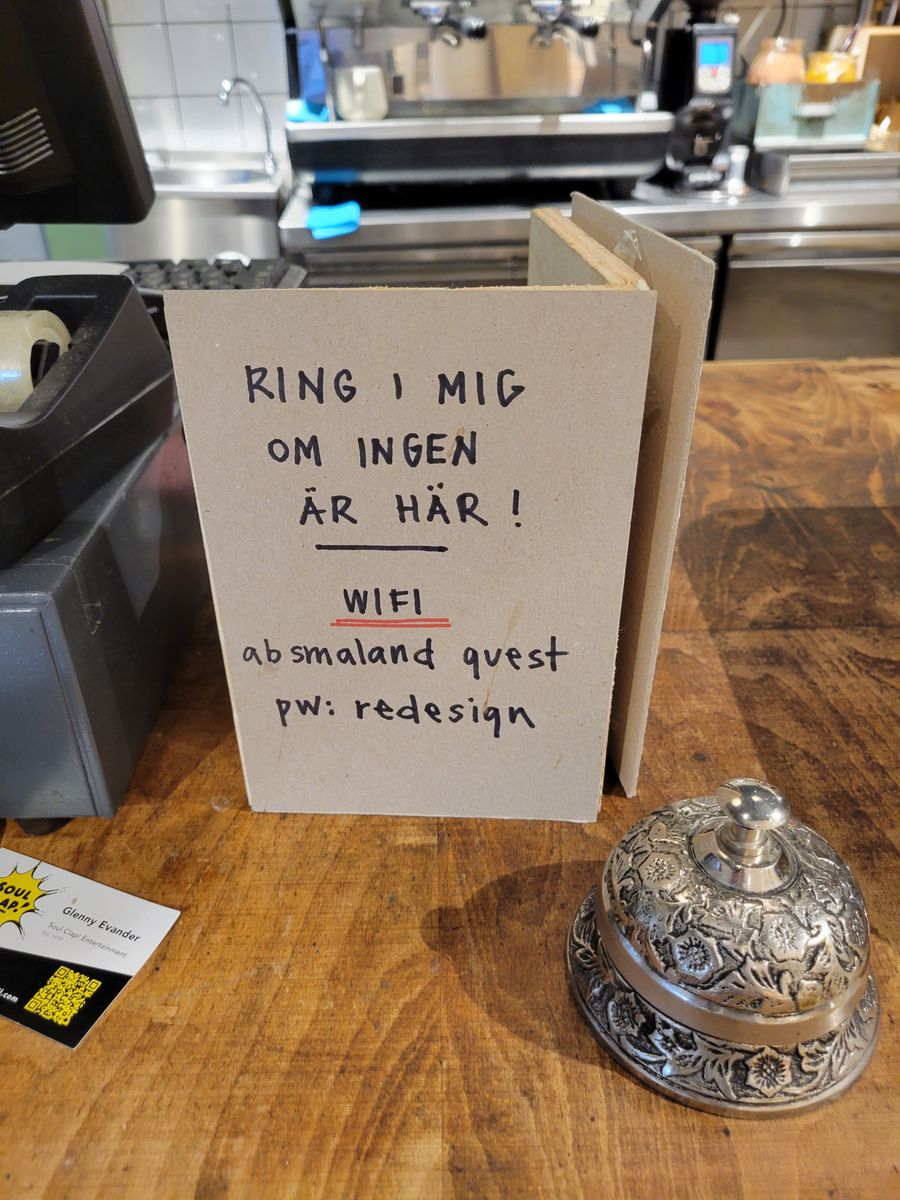 RING I MIG
OM INGEN
ÄR HÄR!
WIFI
absmaland guest
pw: redesign
SOUL
AP!
Glenny Evander
Soul Clap! Entertainment
.com